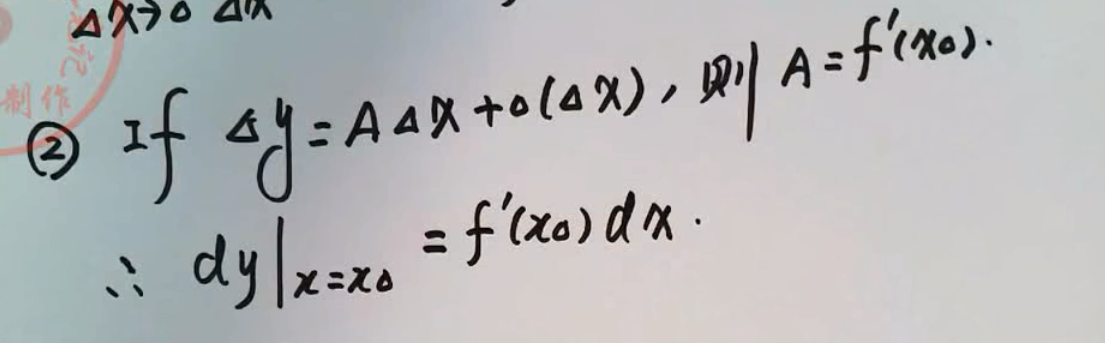 Δx→0 Δx
记
制作
② If Δy=AΔx+o(Δx), 则 A=f'(x₀).
∴ dy|x=x₀ =f'(x₀)dx.